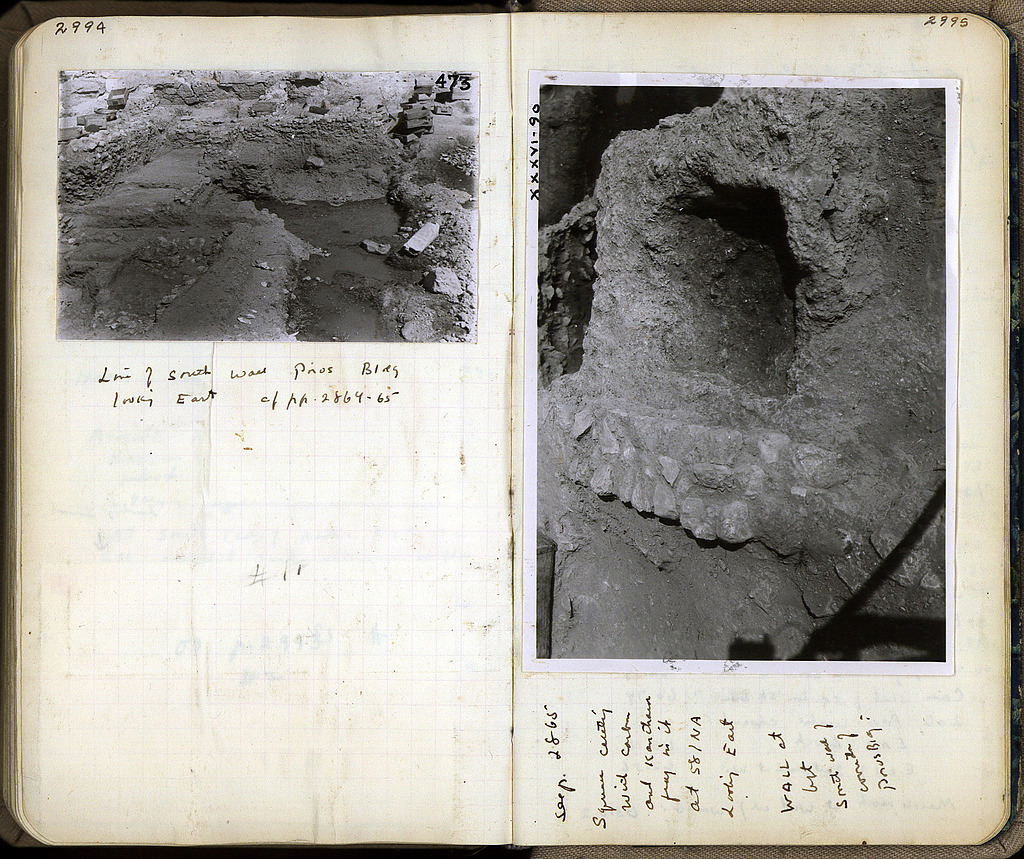 2994
473
Line of South wall Poros Bldg
looking East cf pp. 2864-65
# 11
2995
XXXVI-90
see p. 2865
Square cavity
with carbon
and Kantharos
frag in it
at 58/NA
Looking East
WALL at
left
South wall of
Poros Bldg?